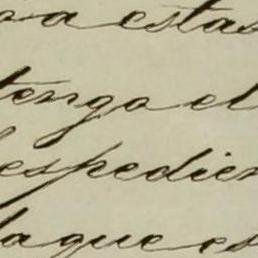 a estas
tengo el
espedien
la que es